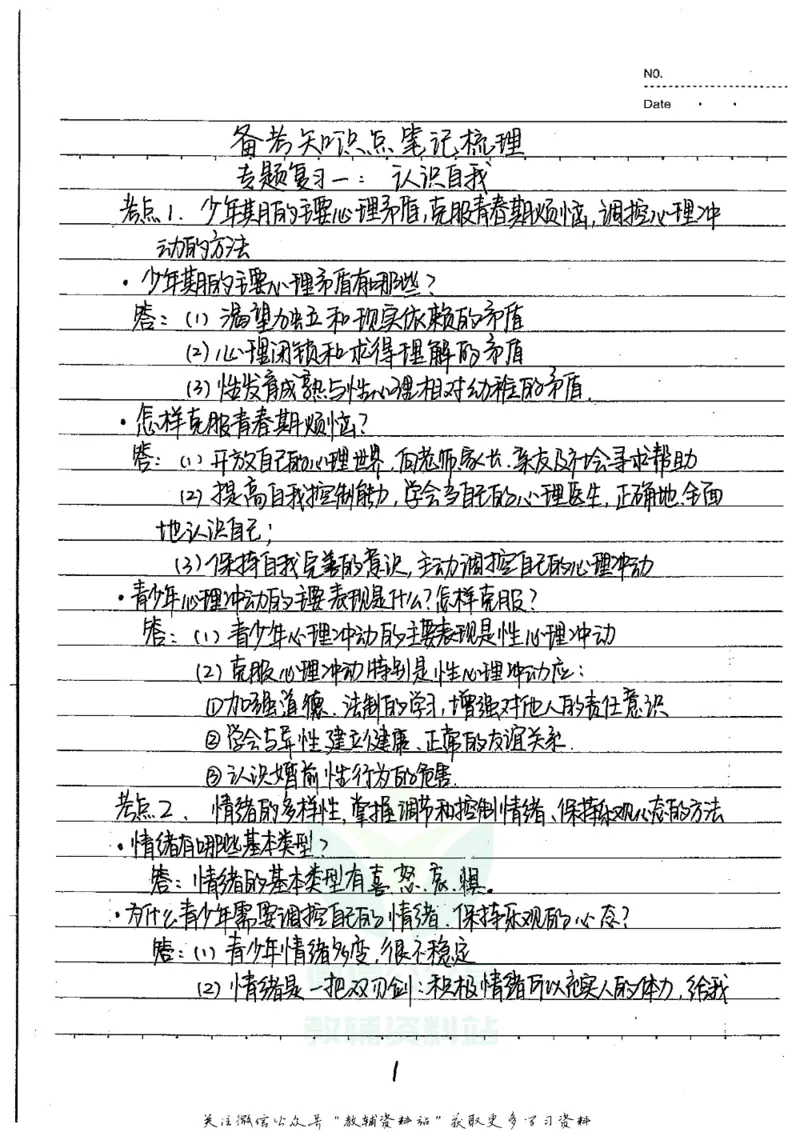 NO.
Date
备考知识点笔记梳理
专题复习一：认识自我
考点1、少年期的主要心理矛盾,克服青春期烦恼,调控心理冲
动的方法
·少年期的主要心理矛盾有哪些?
答：(1)渴望独立和现实依赖的矛盾
(2)心理闭锁和求得理解的矛盾
(3)性发育成熟与性心理相对幼稚的矛盾.
·怎样克服青春期烦恼?
答：(1)开放自己的心理世界,向老师、家长、亲友及社会寻求帮助
(2)提高自我控制能力,学会当自己的心理医生,正确地、全面
地认识自己;
(3)保持自我完善的意识,主动调控自己的心理冲动
·青少年心理冲动的主要表现是什么?怎样克服?
答：(1)青少年心理冲动的主要表现是性心理冲动
(2)克服心理冲动特别是性心理冲动应：
①加强道德、法制的学习,增强对他人的责任意识
②学会与异性建立健康、正常的友谊关系.
③认识婚前性行为的危害.
考点2、情绪的多样性,掌握调节和控制情绪、保持乐观心态的方法
·情绪有哪些基本类型?
答：情绪的基本类型有喜、怒、哀、惧。
·为什么青少年需要调控自己的情绪、保持乐观的心态?
答：(1)青少年情绪多变,很不稳定
(2)情绪是一把双刃剑：积极情绪可以充实人的体力,给我
教辅资料站
1
关注微信公众号"教辅资料站"获取更多学习资料